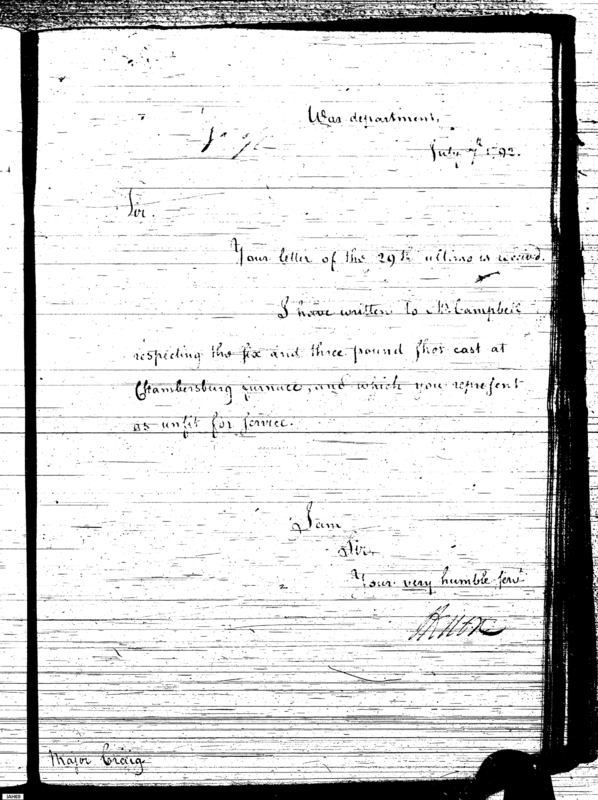 War department,
July 7th 1792.
Sir.
Your letter of the 29th ultimo is received.
I have written to Mr Campbell
respecting the six and three pound shot cast at
Chambersburg furnace, and which you represent
as unfit for service.
I am
Sir,
Your very humble servt
HKnox
Major Craig